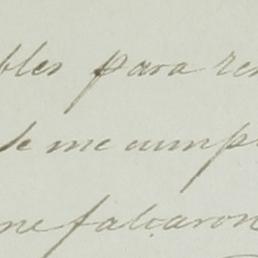 bles para re
se me cump
me faltaron